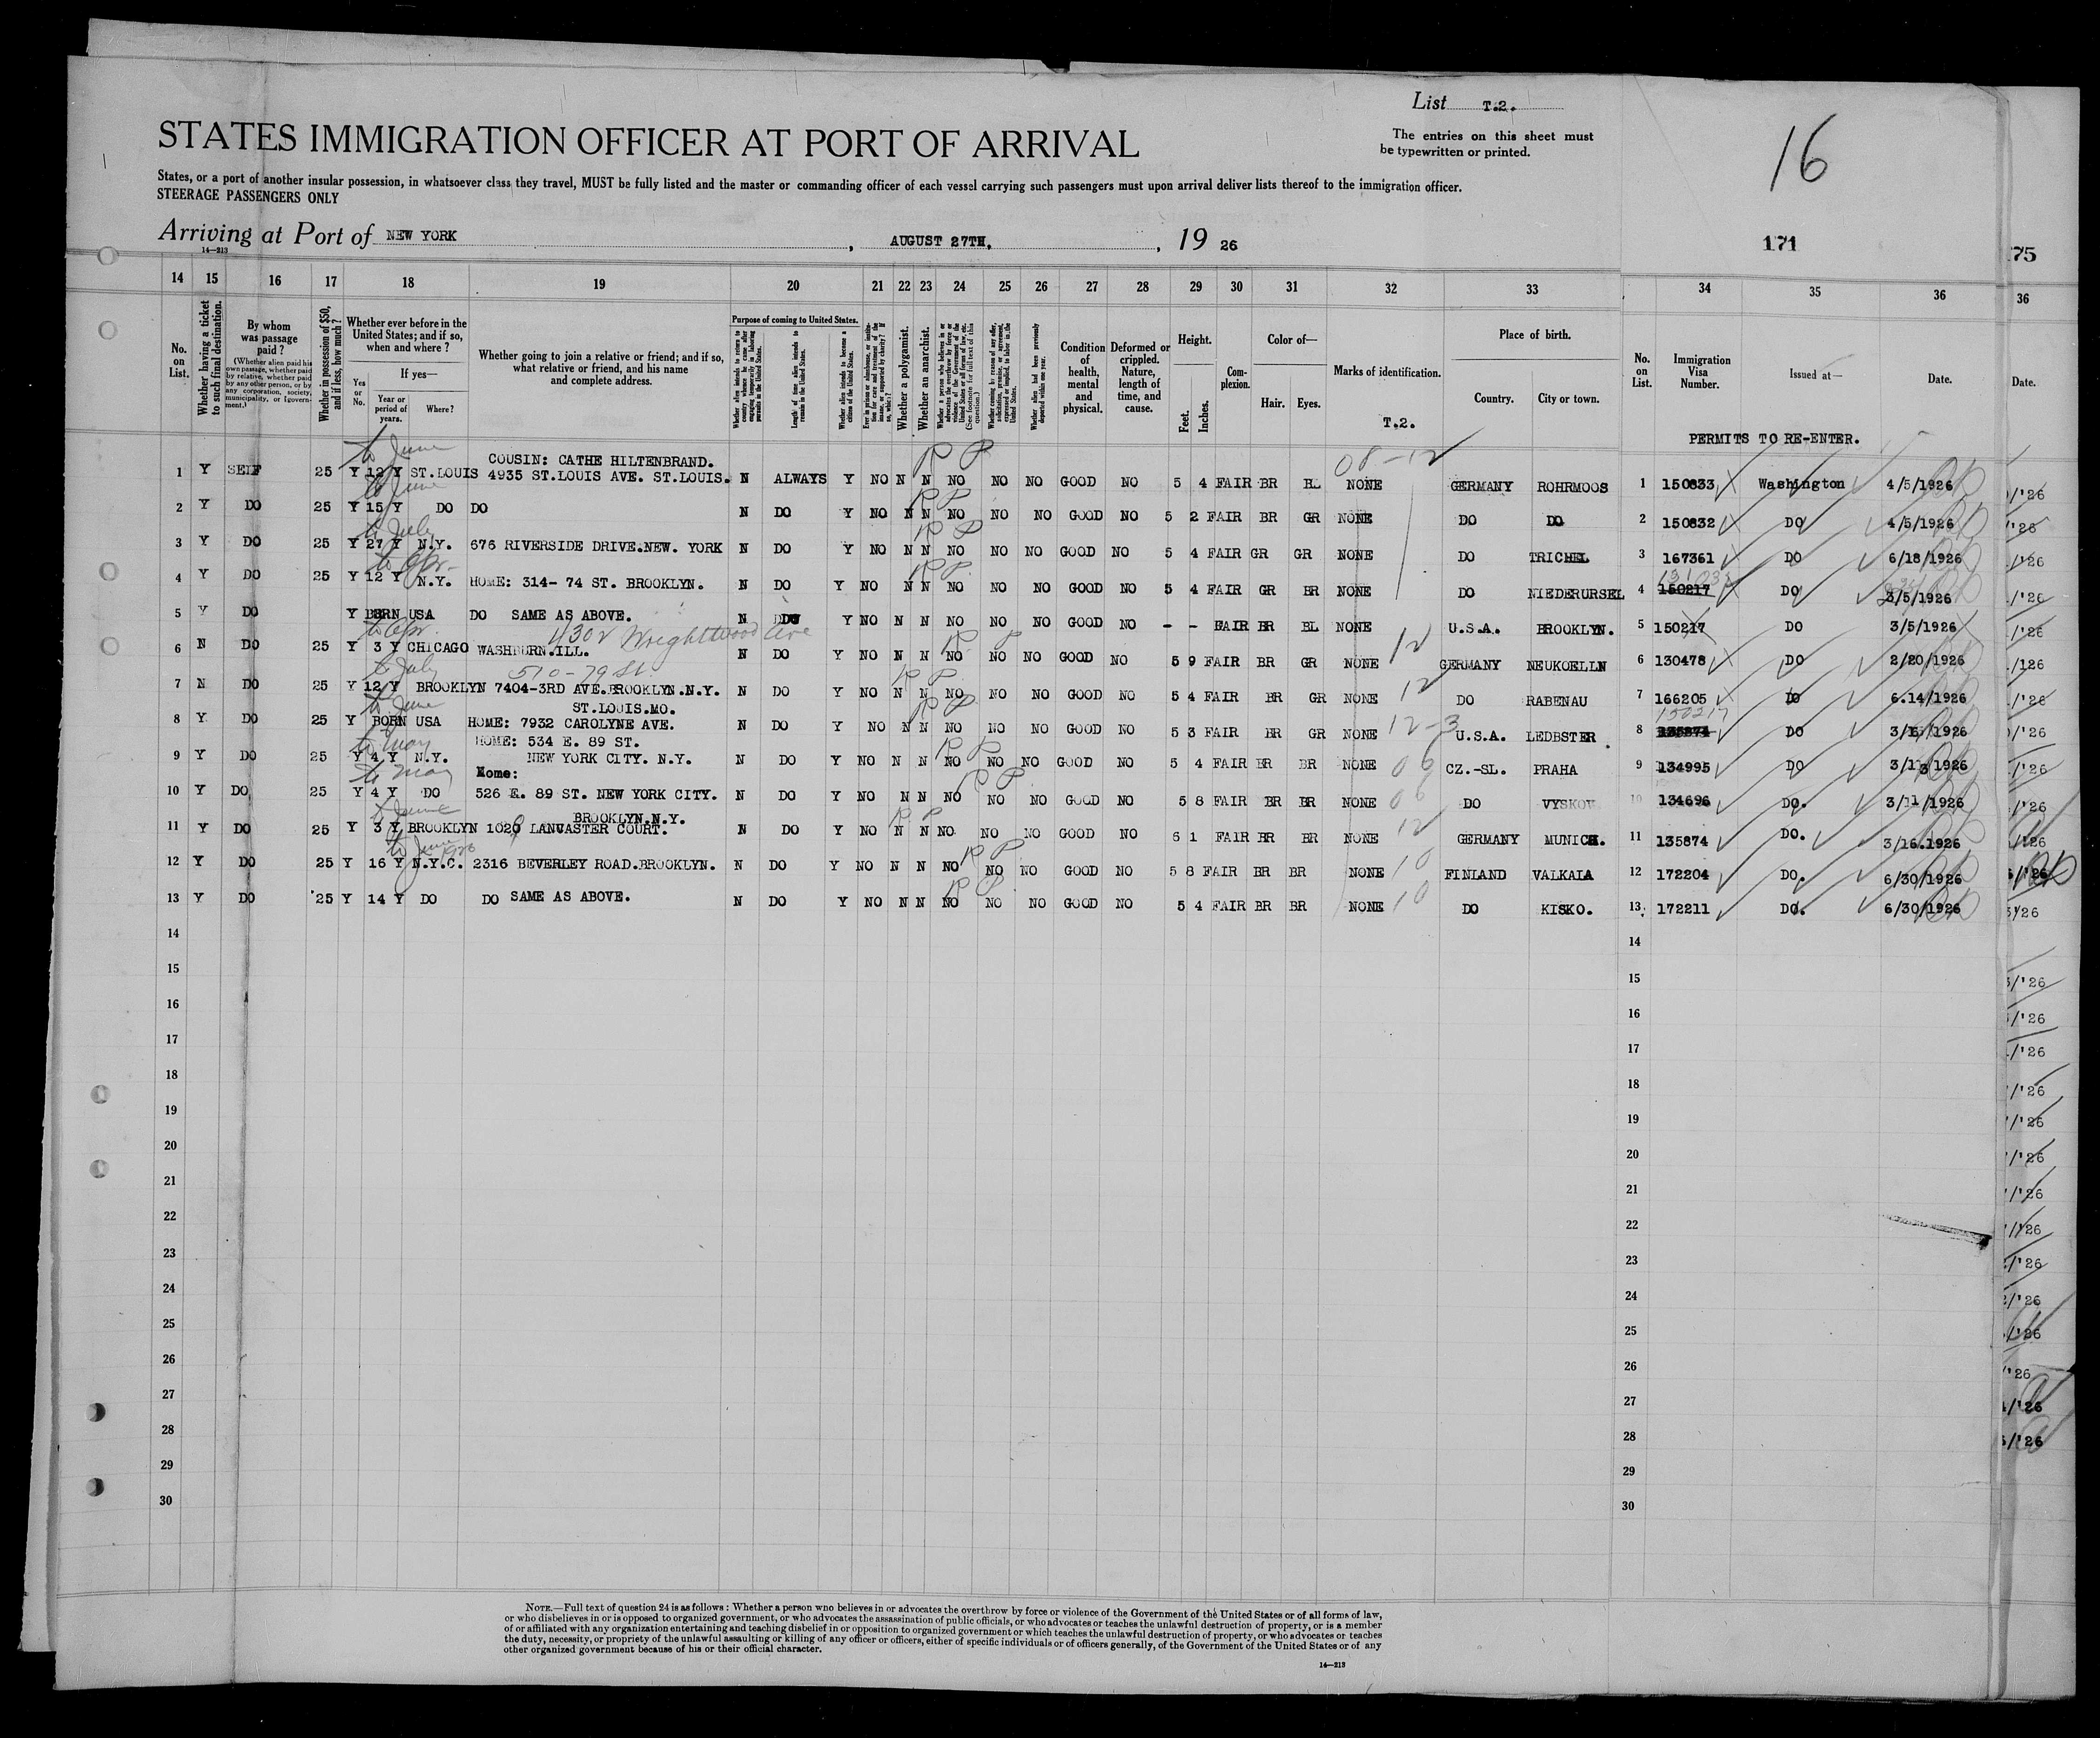 List T.2.
STATES IMMIGRATION OFFICER AT PORT OF ARRIVAL
The entries on this sheet must
be typewritten or printed.
16
States, or a port of another insular possession, in whatsoever class they travel, MUST be fully listed and the master or commanding officer of each vessel carrying such passengers must upon arrival deliver lists thereof to the immigration officer.
STEERAGE PASSENGERS ONLY
Arriving at Port of NEW YORK, AUGUST 27TH, 19 26
14—213
171
175
14 15 16 17 18 19 20 21 22 23 24 25 26 27 28 29 30 31 32 33 34 35 36 36
No. on List.
Whether having a ticket to such final destination.
By whom was passage paid?
(Whether alien paid his own passage, whether paid by relative, whether paid by any other person, or by any corporation, society, municipality, or government.)
Whether in possession of $50, and if less, how much?
Whether ever before in the United States; and if so, when and where?
If yes—
Yes or No.
Year or period of years.
Where?
Whether going to join a relative or friend; and if so, what relative or friend, and his name and complete address.
Purpose of coming to United States.
Whether alien intends to return to country whence he came after engaging temporarily in laboring pursuits in the United States.
Length of time alien intends to remain in the United States.
Whether alien intends to become a citizen of the United States.
Whether a polygamist.
Whether an anarchist.
Condition of health, mental and physical.
Deformed or crippled. Nature, length of time, and cause.
Height.
Feet.
Inches.
Complexion.
Color of—
Hair.
Eyes.
Marks of identification.
T.2.
Place of birth.
Country.
City or town.
No. on List.
Immigration Visa Number.
Issued at—
Date.
Date.
PERMITS TO RE-ENTER.
to June
COUSIN: CATHE HILTENBRAND.
R P
08-12
1 Y SELF 25 Y 12 Y ST.LOUIS 4935 ST.LOUIS AVE. ST.LOUIS. N ALWAYS Y NO N N NO NO NO GOOD NO 5 4 FAIR BR BL NONE GERMANY ROHRMOOS 1 150833 Washington 4/5/1926
to June
R P
2 Y DO 25 Y 15 Y DO DO N DO Y NO N N NO NO NO GOOD NO 5 2 FAIR BR GR NONE DO DO 2 150832 DO 4/5/1926
to July
R P
3 Y DO 25 Y 27 Y N.Y. 676 RIVERSIDE DRIVE.NEW. YORK N DO Y NO N N NO NO NO GOOD NO 5 4 FAIR GR GR NONE DO TRICHEL 3 167361 DO 6/18/1926
to Apr.
R P
4 Y DO 25 Y 12 Y N.Y. HOME: 314- 74 ST. BROOKLYN. N DO Y NO N N NO NO NO GOOD NO 5 4 FAIR GR BR NONE DO NIEDERURSEL 4 150217 DO 3/5/1926
5 Y DO Y BORN USA DO SAME AS ABOVE. N DO Y NO N N NO NO NO GOOD NO - - FAIR BR BL NONE U.S.A. BROOKLYN. 5 150217 DO 3/5/1926
to Apr.
4302 Wrightwood Ave
R P
12
6 N DO 25 Y 3 Y CHICAGO WASHBURN.ILL. N DO Y NO N N NO NO NO GOOD NO 5 9 FAIR BR GR NONE GERMANY NEUKOELLN 6 130478 DO 2/20/1926
to July
510-79 St.
R P
12
7 N DO 25 Y 12 Y BROOKLYN 7404-3RD AVE.BROOKLYN.N.Y. N DO Y NO N N NO NO NO GOOD NO 5 4 FAIR BR GR NONE DO RABENAU 7 166205 DO 6.14/1926
to June
ST.LOUIS.MO.
R P
12-3
150217
8 Y DO 25 Y BORN USA HOME: 7932 CAROLYNE AVE. N DO Y NO N N NO NO NO GOOD NO 5 3 FAIR BR GR NONE U.S.A. LEDBSTER 8 135874 DO 3/16/1926
to May
HOME: 534 E. 89 ST.
R P
06
9 Y DO 25 Y 4 Y N.Y. NEW YORK CITY. N.Y. N DO Y NO N N NO NO NO GOOD NO 5 4 FAIR BR BR NONE CZ.-SL. PRAHA 9 134995 DO 3/13/1926
to May
Home:
R P
06
10 Y DO 25 Y 4 Y DO 526 E. 89 ST. NEW YORK CITY. N DO Y NO N N NO NO NO GOOD NO 5 8 FAIR BR BR NONE DO VYSKOV 10 134696 DO. 3/11/1926
to June
BROOKLYN.N.Y.
R P
12
11 Y DO 25 Y 3 Y BROOKLYN 1020 LANCASTER COURT. N DO Y NO N N NO NO NO GOOD NO 6 1 FAIR BR BR NONE GERMANY MUNICH. 11 135874 DO. 3/16.1926
to June 1926
R P
10
12 Y DO 25 Y 16 Y N.Y.C. 2316 BEVERLEY ROAD.BROOKLYN. N DO Y NO N N NO NO NO GOOD NO 5 8 FAIR BR BR NONE FINLAND VALKAIA 12 172204 DO. 6/30/1926
R P
10
13 Y DO 25 Y 14 Y DO DO SAME AS ABOVE. N DO Y NO N N NO NO NO GOOD NO 5 4 FAIR BR BR NONE DO KISKO. 13 172211 DO. 6/30/1926
14 14
15 15
16 16
17 17
18 18
19 19
20 20
21 21
22 22
23 23
24 24
25 25
26 26
27 27
28 28
29 29
30 30
NOTE.—Full text of question 24 is as follows: Whether a person who believes in or advocates the overthrow by force or violence of the Government of the United States or of all forms of law,
or who disbelieves in or is opposed to organized government, or who advocates the assassination of public officials, or who advocates or teaches the unlawful destruction of property, or is a member
of or affiliated with any organization entertaining and teaching disbelief in or opposition to organized government or which teaches the unlawful destruction of property, or who advocates or teaches
the duty, necessity, or propriety of the unlawful assaulting or killing of any officer or officers, either of specific individuals or of officers generally, of the Government of the United States or of any
other organized government because of his or their official character.
14—213